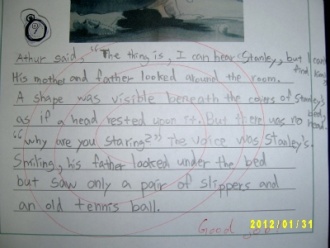 9
Athur said. "The thing is, I can hear Stanley, but I can't
find him
His mother and father looked around the room.
A shape was visible beneath the covers of Stanley's bed
as if a head rested upon it. But there was no head
"why are you staring?" The voice was Stanley's.
Smiling, his father looked under the bed
but saw only a pair of slippers and
an old tennis ball.
Good
2012/01/31